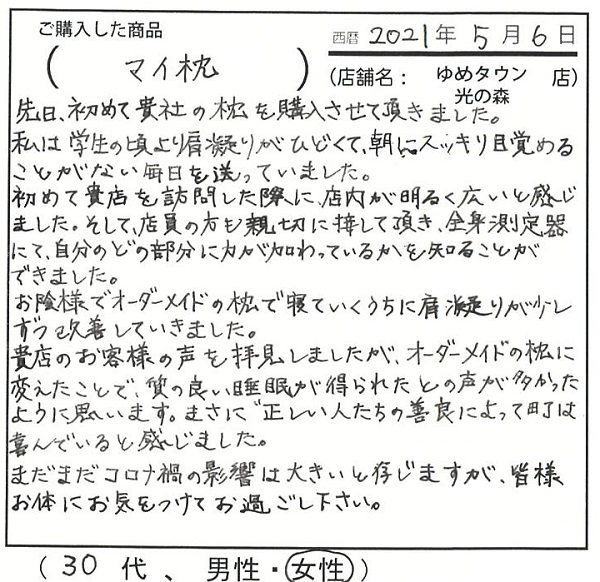 ご購入した商品
西暦 2021年 5月 6日
( マイ枕 )
(店舗名: ゆめタウン 店)
光の森
先日、初めて貴社の枕を購入させて頂きました。
私は学生の頃より肩凝りがひどくて、朝にスッキリ目覚める
ことがない毎日を送っていました。
初めて貴店を訪問した際に、店内が明るく広いと感じ
ました。そして、店員の方も親切に接して頂き、全身測定器
にて、自分のどの部分に力が加わっているかを知ることが
できました。
お陰様でオーダーメイドの枕で寝ていくうちに肩凝りが少し
ずつ改善していきました。
貴店のお客様の声を拝見しましたが、オーダーメイドの枕に
変えたことで、質の良い睡眠が得られたとの声が多かった
ように思います。まさに“正しい人たちの善良によって町は
喜んでいると感じました。
まだまだコロナ禍の影響は大きいと存じますが、皆様
お体にお気をつけてお過ごし下さい。
(30代、男性・女性)